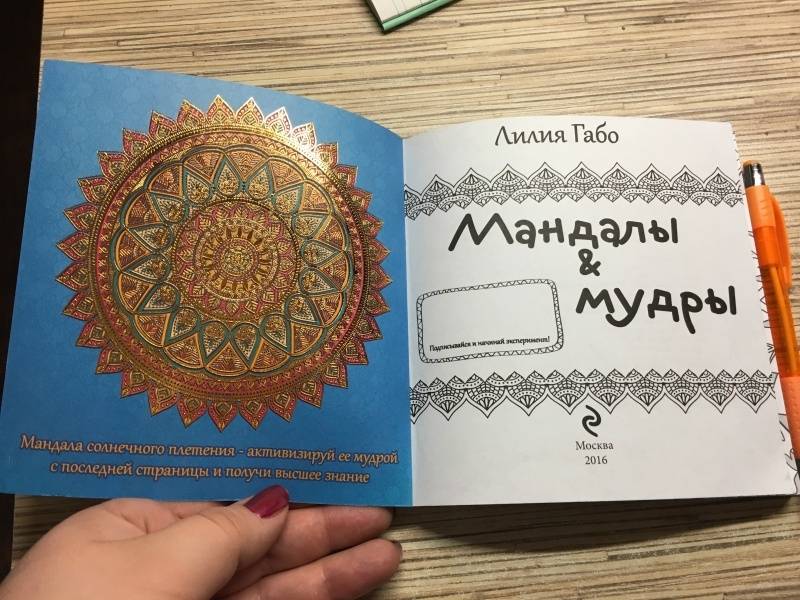 Мандала солнечного плетения - активизируй ее мудрой
с последней страницы и получи высшее знание
Лилия Габо
Мандалы
&
мудры
Подписывайся и начинай эксперимент!
Москва
2016